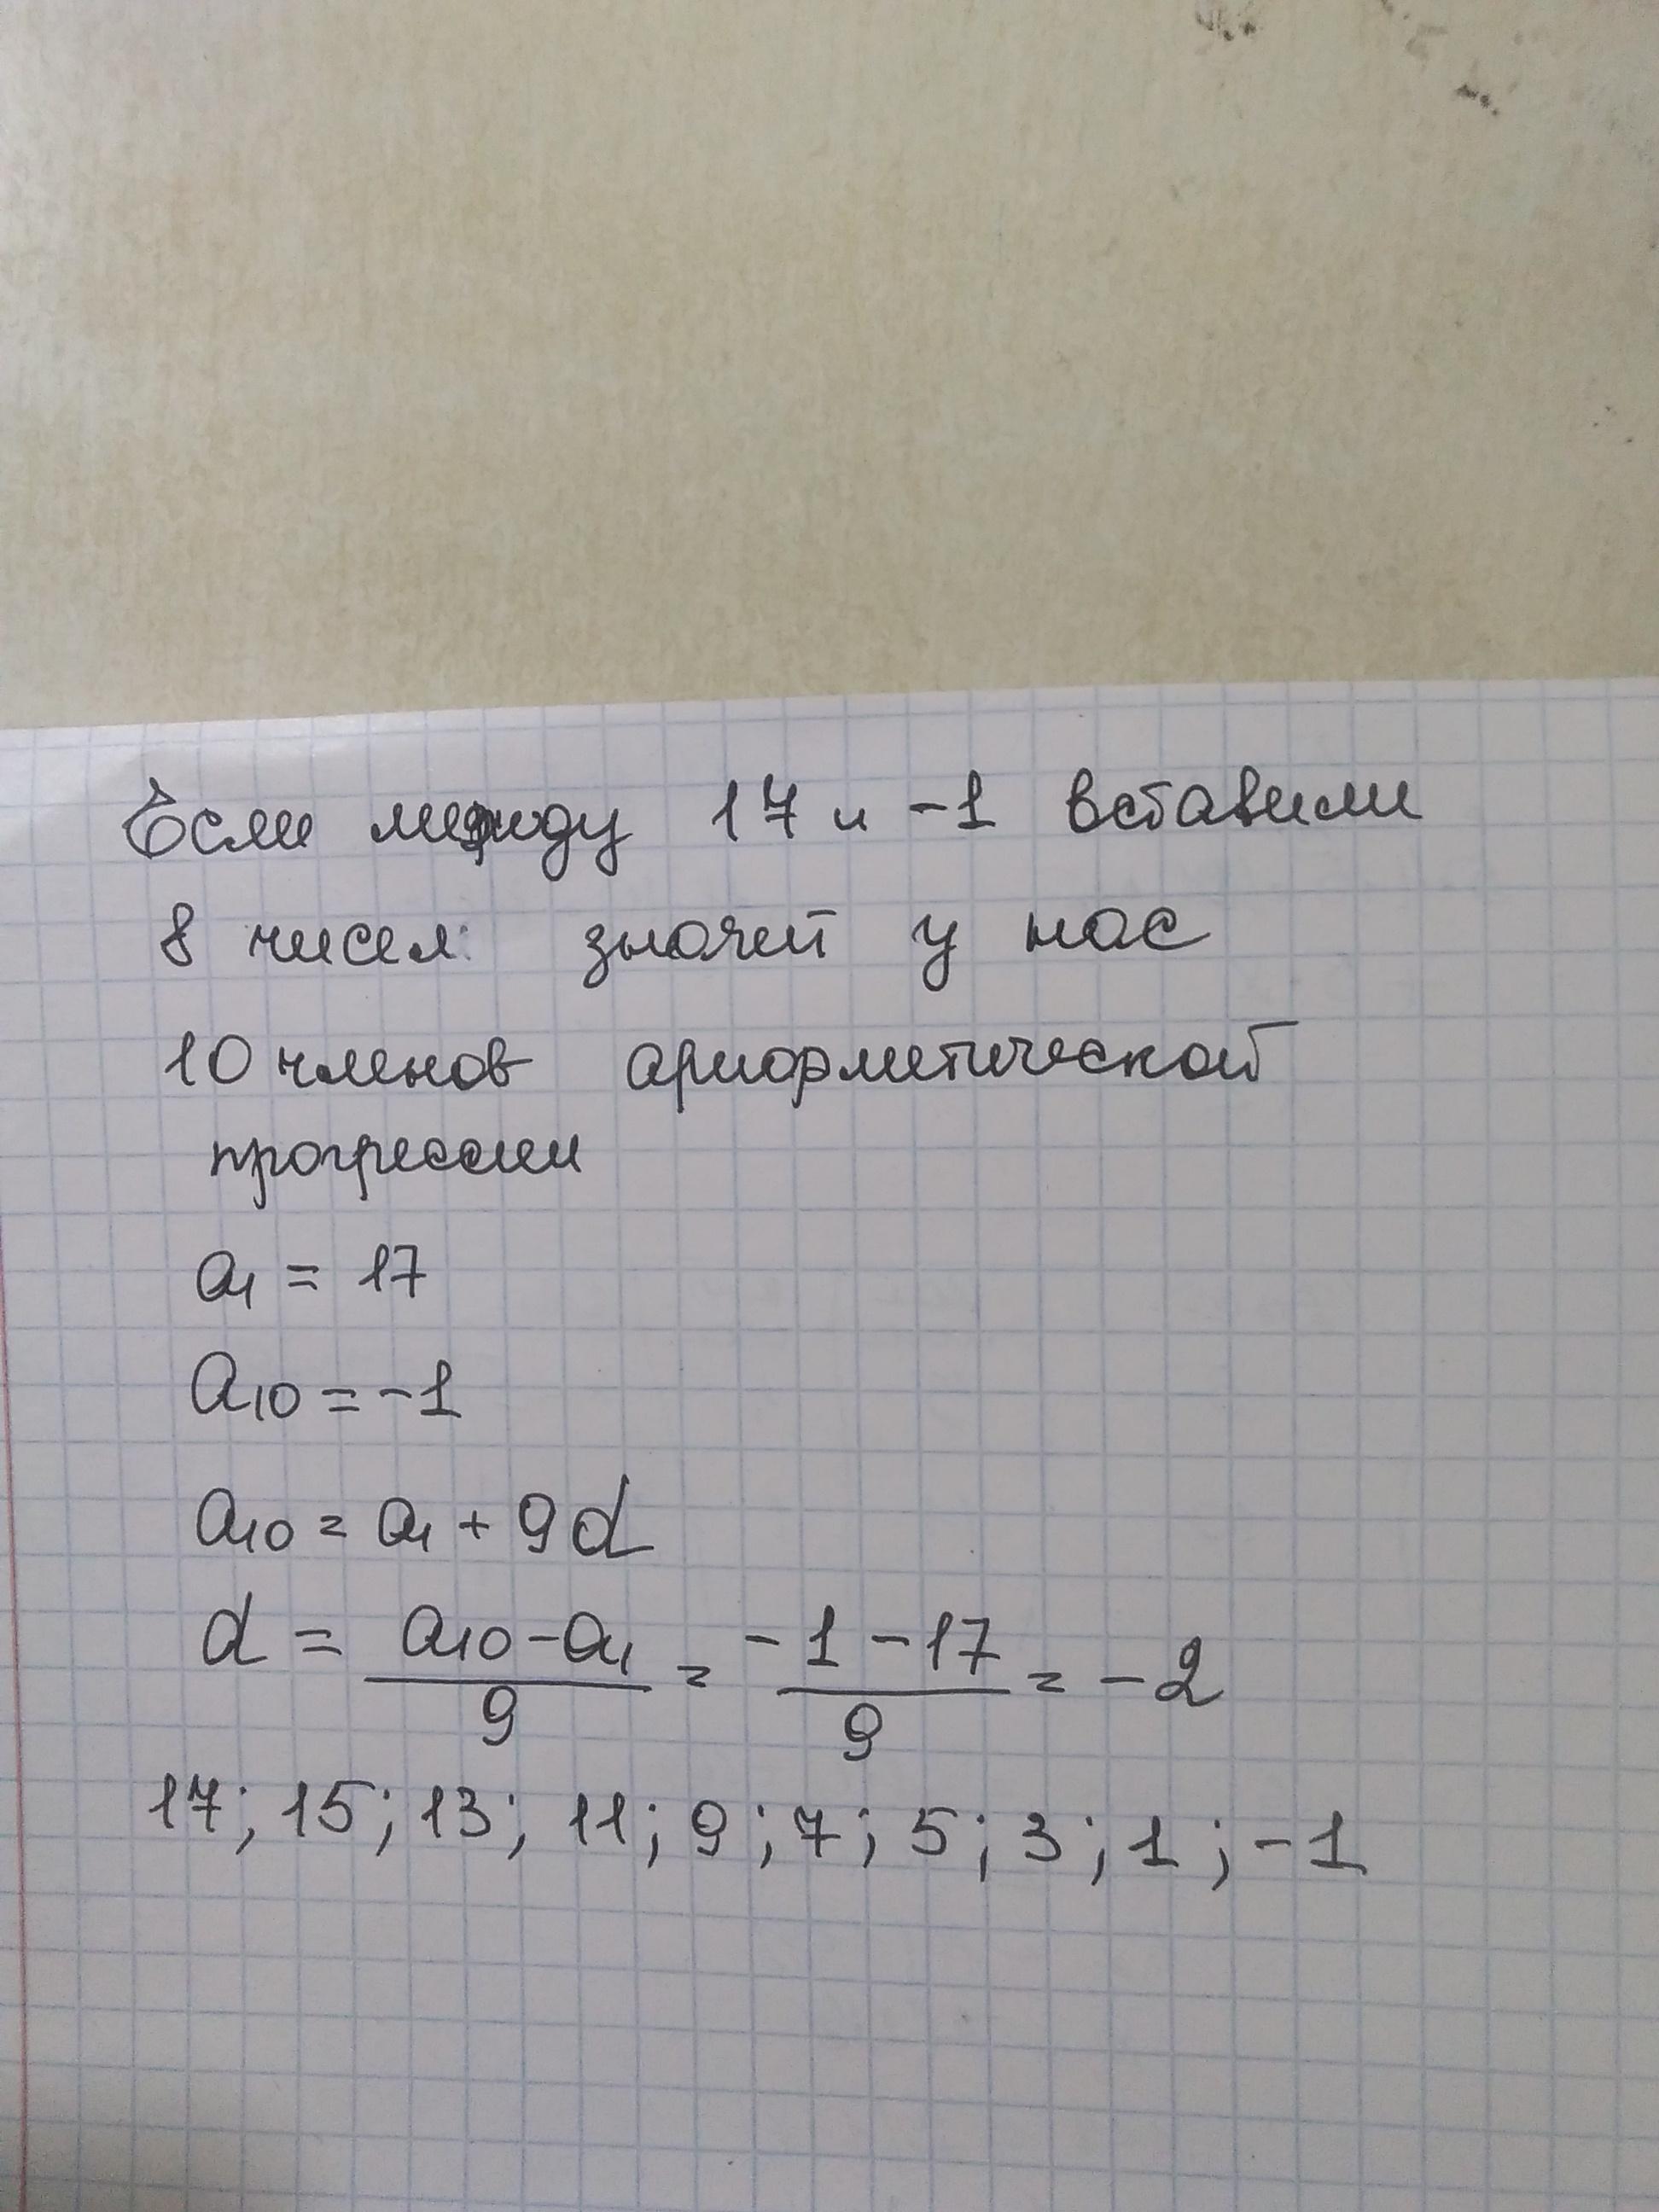 Если между 17 и -1 вставили
8 чисел значит у нас
10 членов арифметической
прогрессии
a₁ = 17
a₁₀ = -1
a₁₀ = a₁ + 9d
d = (a₁₀ - a₁)/9 = (-1 - 17)/9 = -2
17; 15; 13; 11; 9; 7; 5; 3; 1; -1